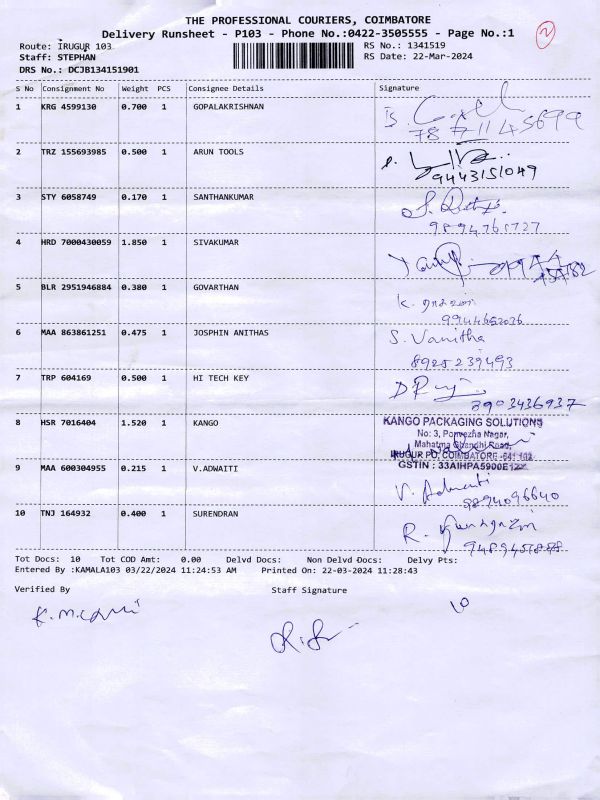 THE PROFESSIONAL COURIERS, COIMBATORE
Delivery Runsheet - P103 - Phone No.:0422-3505555 - Page No.:1
2
Route: IRUGUR 103
RS No.: 1341519
Staff: STEPHAN
RS Date: 22-Mar-2024
DRS No.: DCJB134151901
S No Consignment No Weight PCS Consignee Details Signature
1 KRG 4599130 0.700 1 GOPALAKRISHNAN
2 TRZ 155693985 0.500 1 ARUN TOOLS
9443151049
3 STY 6058749 0.170 1 SANTHANKUMAR
4 HRD 7000430059 1.850 1 SIVAKUMAR
5 BLR 2951946884 0.380 1 GOVARTHAN
K.
9944652036
6 MAA 863861251 0.475 1 JOSPHIN ANITHAS
S. Vanitha
8925239493
7 TRP 604169 0.500 1 HI TECH KEY
8903436937
8 HSR 7016404 1.520 1 KANGO
KANGO PACKAGING SOLUTIONS
No: 3, Nagar,
Mahatma Gandhi Road,
IRUGUR PO, COIMBATORE -641 103
GSTIN : 33AIHPA5900E
9 MAA 600304955 0.215 1 V.ADWAITI
V. Adwaiti
8894096640
10 TNJ 164932 0.400 1 SURENDRAN
R.
Tot Docs: 10 Tot COD Amt: 0.00 Delvd Docs: Non Delvd Docs: Delvy Pts:
Entered By :KAMALA103 03/22/2024 11:24:53 AM Printed On: 22-03-2024 11:28:43
Verified By Staff Signature
10